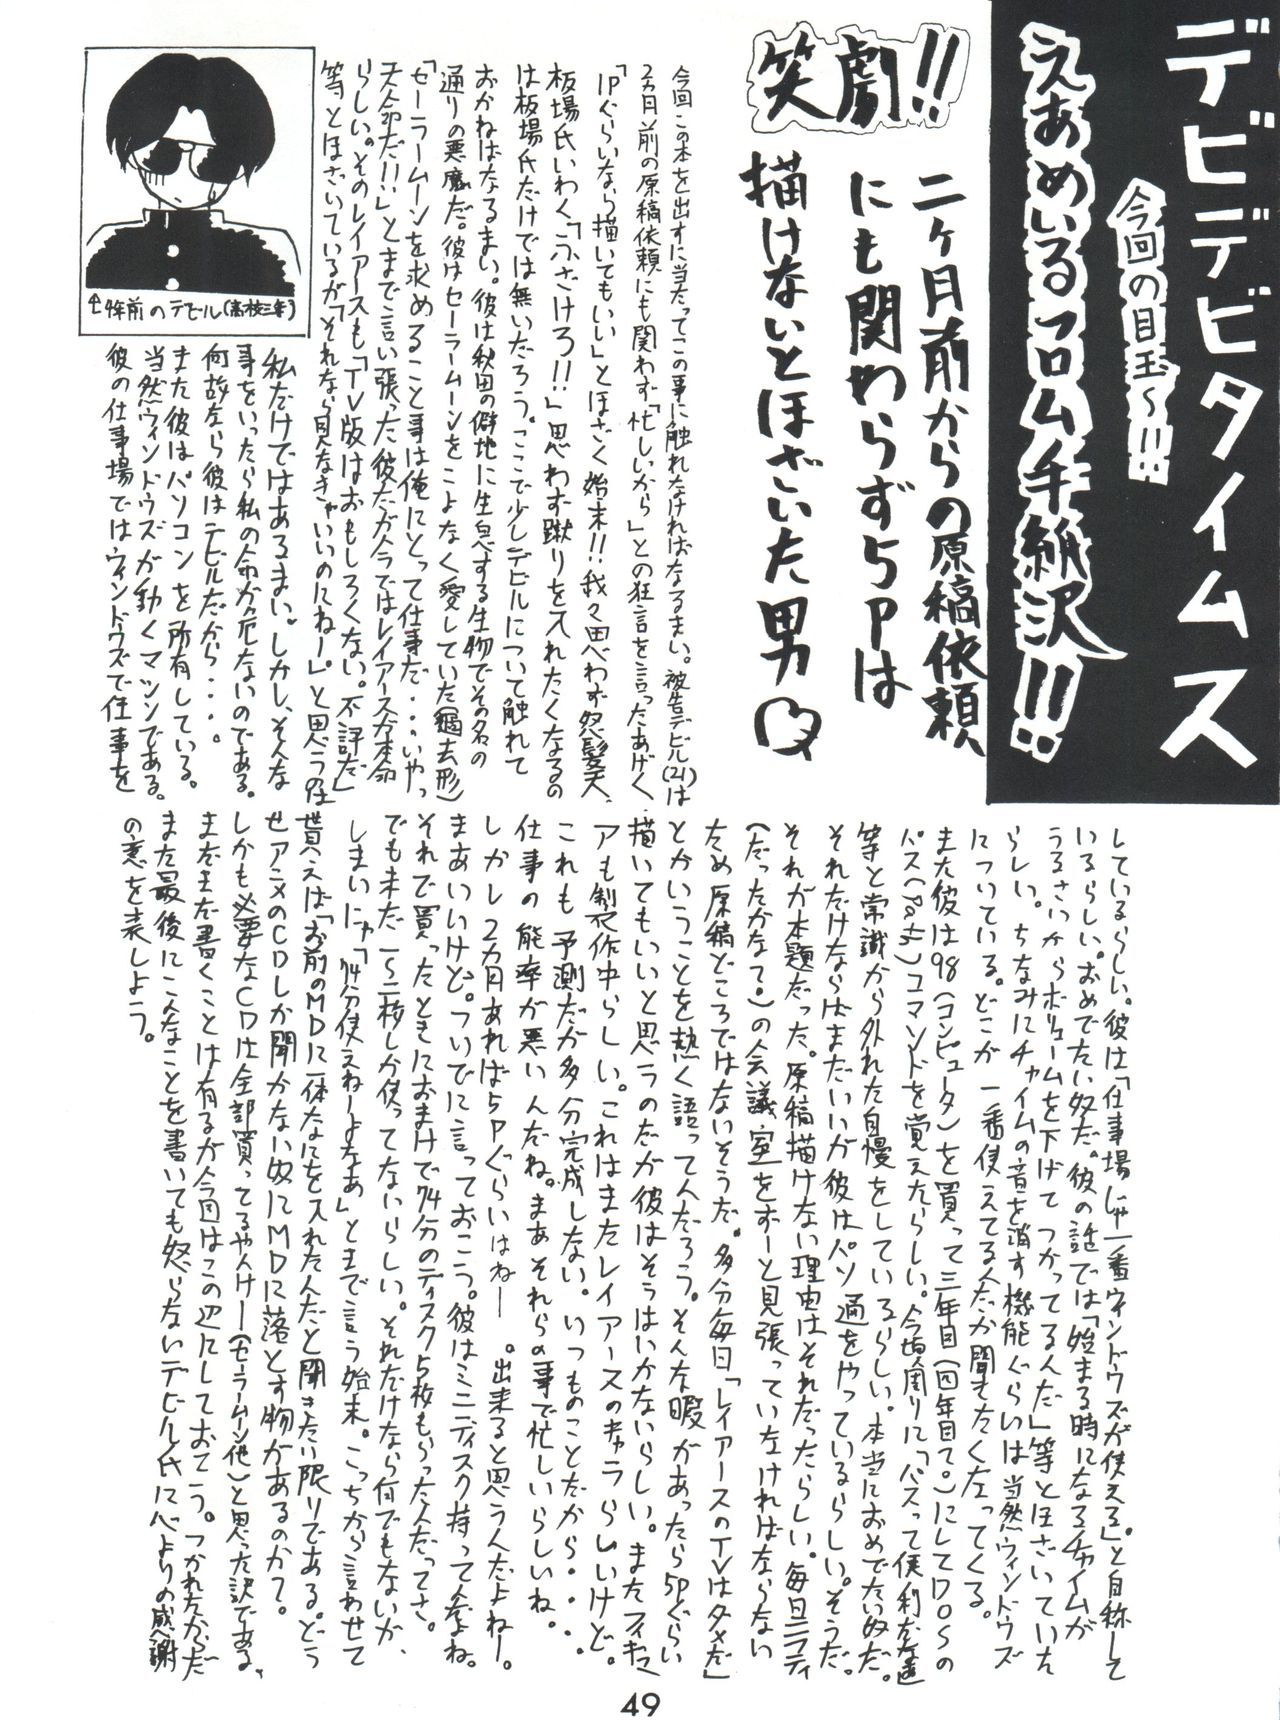 デビデビタイムス
今回の目玉～!!
えあめいるフロム手納沢!!
笑劇!!
二ヶ月前からの原稿依頼
にも関わらず5Pは
描けないとほざいた男
今回この本を出すに当たってこの事に触れなければなるまい。被告デビル(21)は
2ヵ月前の原稿依頼にも関わず「忙しいから」との狂言を言ったあげく
「1Pぐらいなら描いてもいい」とほざく始末!!我々思わず怒髪天
板場氏いわく「ふざけろ!!」思わず蹴りを入れたくなるの
は板場氏だけでは無いだろう。ここで少しデビルについて触れて
おかねばなるまい。彼は秋田の僻地に生息する生物でその名の
通りの悪魔だ。彼はセーラームーンをこよなく愛していた(過去形)
「セーラームーンを求めること事は俺にとって仕事だ・・・いやっ
天命だ!!」とまで言い張った彼だが今ではレイアースが本命
らしい。そのレイアースも「TV版はおもしろくない。不評だ」
等とほざいているが「それなら見なきゃいいのにねー」と思うのは
私だけではあるまい。しかし、そんな
事をいったら私の命が危ないのである。
何故なら彼はデビルだから・・・。
また彼はパソコンを所有している。
当然ウィンドウズが動くマッシンである。
彼の仕事場ではウィンドウズで仕事を
↑4年前のデビル(高校三年)
しているらしい。彼は「仕事場じゃ一番ウィンドウズが使える」と自称して
いるらしい。おめでたい奴だ。彼の話では「始まる時になるチャイムが
うるさいからボリュームを下げてつかってるんだ」等とほざいていた
らしい。ちなみにチャイムの音を消す機能ぐらいは当然ウィンドウズ
についている。どこが一番使えてる人だか聞きたくなってくる。
また彼は98(コンピュータ)を買って三年目(四年目て。)にしてDOSの
パス(Path)コマンドを覚えたらしい。今頃周りに「パスって便利だな」
等と常識から外れた自慢をしているらしい。本当におめでたい奴だ。
それだけならばまだいいが彼はパソ通をやっているらしい。そうだ。
それが本題だった。原稿描けない理由はそれだったらしい。毎日ニフティ
(だったかなて。)の会議室をずーと見張っていなければならない
ため原稿どころではないそうだ。多分毎日「レイアースのTVはダメだ」
とかいうことを熱く語ってんだろう。そんな暇があったら5Pぐらい
描いてもいいと思うのだが彼はそうはいかないらしい。またフィギュ
アも製作中らしい。これはまたレイアースのキャラらしいけど。
これも予測だが多分完成しない。いつものことだから・・・。
仕事の能率が悪いんだね。まあそれらの事で忙しいらしいね。
しかし2カ月あれば5Pぐらいはねー。出来ると思う人だよねー。
まあいいけど。ついでに言っておこう。彼はミニディスク持ってんだよね。
それで買ったときにおまけで74分のディスク5枚もらったんだってさ。
でも未だ一〜二枚しか使ってないらしい。それだけなら何でもないが、
しまいにゃ「74分使えねーよなあ」とまで言う始末。こっちから言わせて
貰えば「お前のMDに一体なにを入れたんだと聞きたい限りである。どう
せアニメのCDしか聞かない奴にMDに落とす物があるのかて。
しかも必要なCDは全部買ってるやんけー(セーラームーン他)と思った訳である。
まだまだ書くことは有るが今回はこの辺にしておこう。つかれたからだ
また最後にこんなことを書いても怒らないデビル氏に心よりの感謝
の意を表しよう。
49